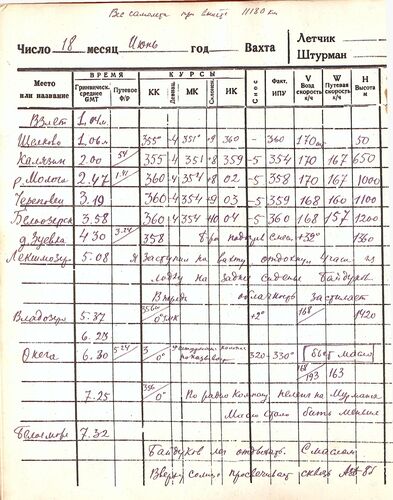 Все самолета при вылете 11180 кг
Число 18 месяц Июнь год Вахта
Летчик
Штурман
Место или название
ВРЕМЯ
Гринвическ. среднее GMT
Путевое Ф/Р
КУРСЫ
КК Девиац. МК Склонен. ИК
Снос
Факт. ИПУ
V Возд скорость к/ч
W Путевая скорость к/ч
H Высота м
Взлет 1.04м.
Щелково 1.06м. 355° -4 351° +9 360 - 360 170 50
Калязин 2.00 54 355 -4 351 +8 359 -5 354 170 167 650
р. Молога 2.47 1.41 360 -4 354 +8 02 -5 358 170 167 1000
Череповец 3.19 360 -4 354 +9 03 -5 359 168 160 1100
Белоозерск 3.58 360 -4 354 +10 04 -5 360 168 157 1200
д. Зуевла 4.30 3.24 358 +32° 1360
Лекшмозеро 5.08 Я заступил на вахту, отдохнув 4 часа из
на заднем сиденье Байдуков
Впереди облачность застилает
Владозеро 5.37 0° МК +2° 168 1420
6.23
Онега 6.30 5.24 3 0° 320 -330° бьет масло
168 193 163
7.25 356 0° По радио компасу пеленг на Мурманск
Масло стало бить меньше
Белое море 7.32
Байдуков лег отдыхать. С маслом
Вверху солнце просвечивает сквозь